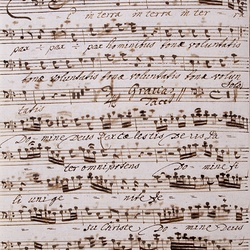 in terra in terra in ter
pax pax hominibus bonæ voluntatis
bonæ voluntatis bonæ voluntatis bonæ volun
tatis Gratias Tacet
Domine Deus Rex cælestis Deus Pa
ter omnipotens Domine fi
li unige nite
su Christe Domine Deus